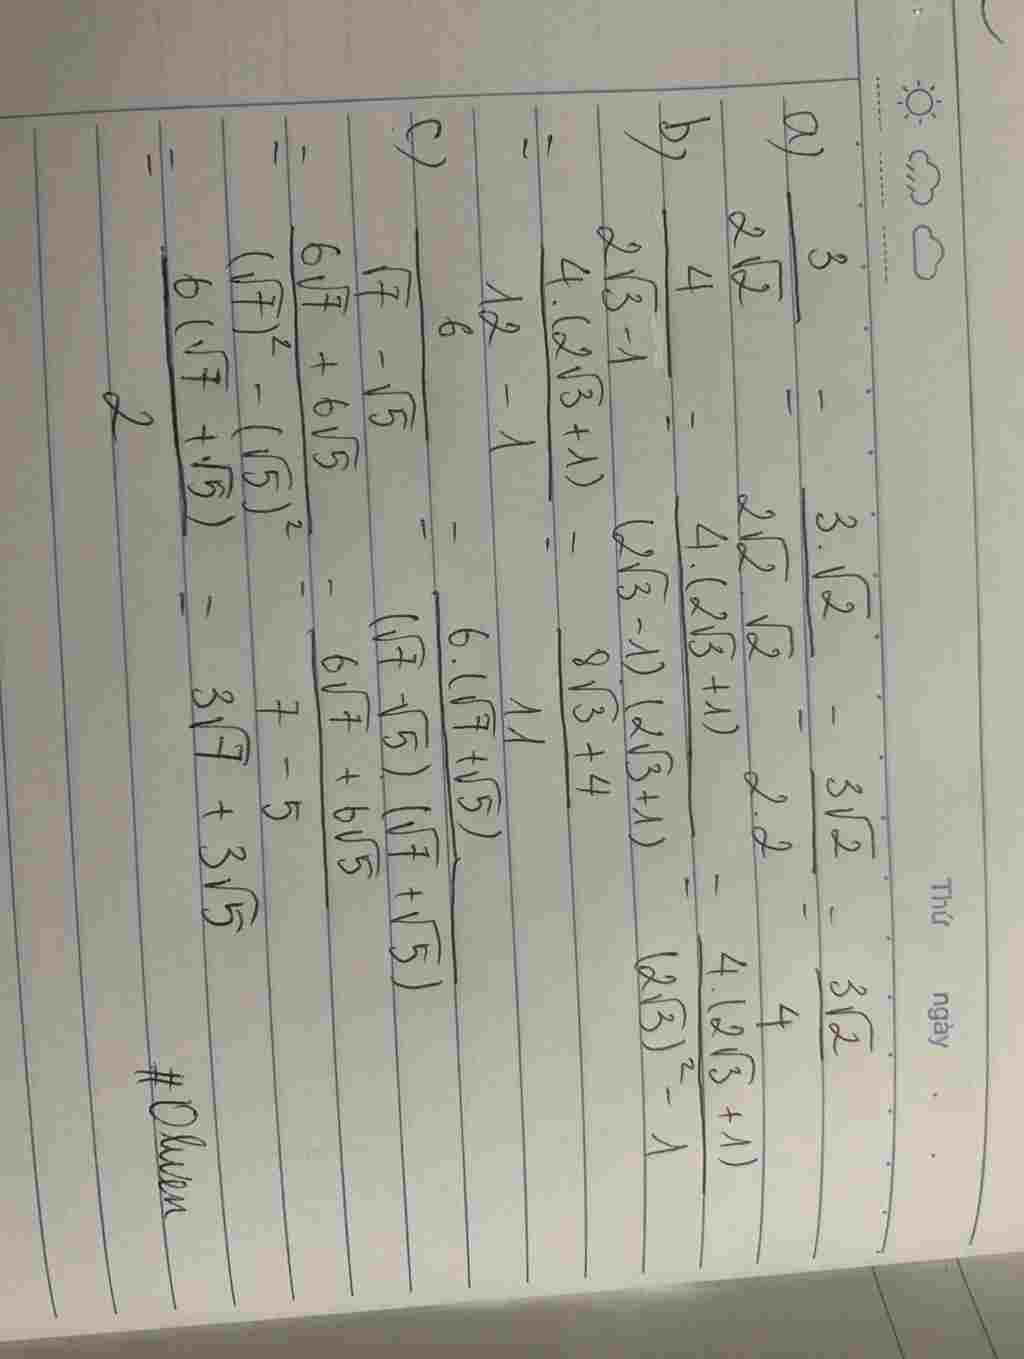 Thứ ngày . .
a) 3/(2√2) = (3.√2)/(2√2.√2) = 3√2/(2.2) = 3√2/4
b) 4/(2√3-1) = 4.(2√3+1)/((2√3-1)(2√3+1)) = 4.(2√3+1)/((2√3)²-1)
= 4.(2√3+1)/(12-1) = (8√3+4)/11
c) 6/(√7-√5) = 6.(√7+√5)/((√7-√5)(√7+√5))
= (6√7+6√5)/((√7)²-(√5)²) = (6√7+6√5)/(7-5)
= 6(√7+√5)/2 = 3√7+3√5